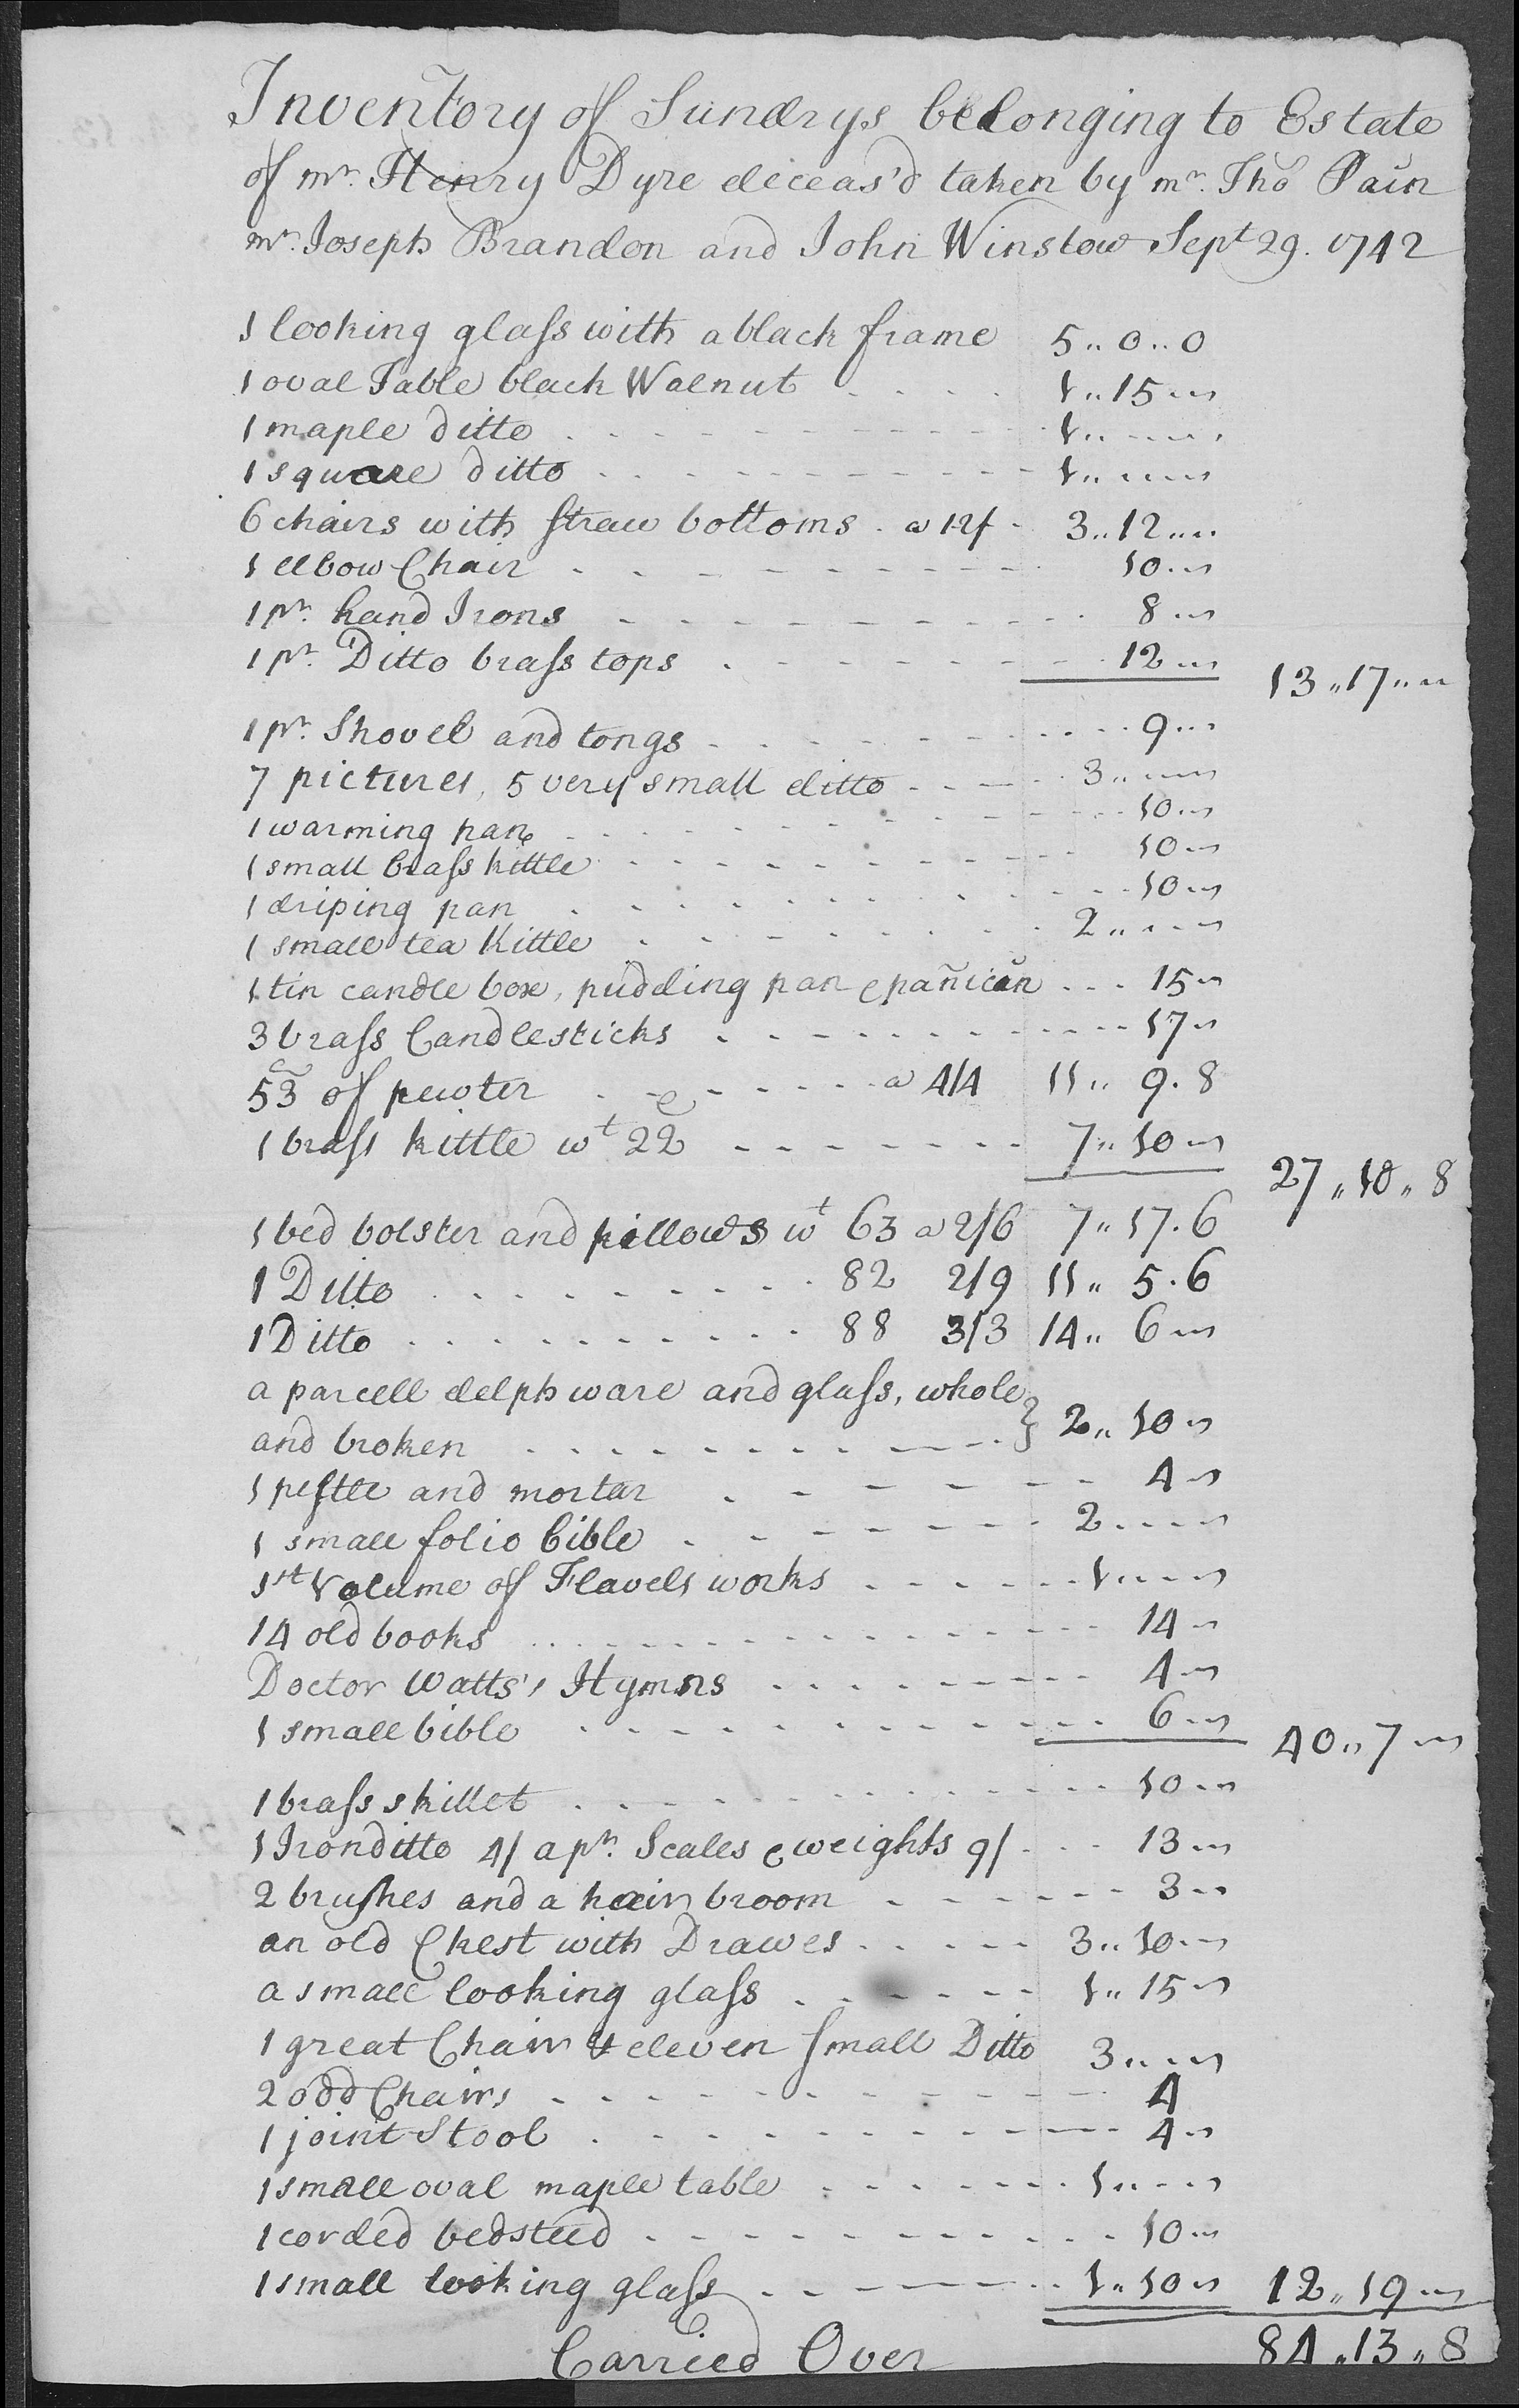 Inventory of Sundrys belonging to Estate
of mr. Henry Dyre diceas'd taken by mr. Tho Pain
mr. Joseph Brandon and John Winslow Sept 29. 1742
1 looking glass with a black frame 5 .. 0 .. 0
1 oval Table black Walnut 1 .. 15 ..
1 maple ditto 1 ..
1 square ditto 1 ..
6 chairs with straw bottoms . a 12/ 3 .. 12 ..
1 elbow Chair 10 ..
1 pr. hand Irons 8 ..
1 pr. Ditto brass tops 12 ..
13 .. 17 ..
1 pr. Shovel and tongs 9 ..
7 pictures, 5 very small ditto 3 ..
1 warming pan 10 ..
1 small brass kittle 10 ..
1 driping pan 10 ..
1 small tea Kittle 2 ..
1 tin candle box, pudding pan & panican 15 ..
3 brass Candlesticks 17 ..
53 of pewter a 4/4 11 .. 9 . 8
1 brass kittle wt 22 7 .. 10 ..
27 .. 10 .. 8
1 bed bolster and pillows wt 63 a 2/6 7 .. 17 . 6
1 Ditto 82 2/9 11 .. 5 . 6
1 Ditto 88 3/3 14 .. 6 ..
a parcell delph ware and glass, whole
and broken } 2 .. 10 ..
1 pestle and mortar 4 ..
1 small folio bible 2 ..
1st Volume of Flavels works 1 ..
14 old books 14 ..
Doctor Watts's Hymns 4 ..
1 small bible 6 ..
40 .. 7 ..
1 brass skillet 10 ..
1 Iron ditto 4/ a pr. Scales & weights 9/ 13 ..
2 brushes and a hair broom 3 ..
an old Chest with Drawes 3 .. 10 ..
a small looking glass 1 .. 15 ..
1 great Chair & eleven small Ditto 3 ..
2 odd Chairs 4
1 joint Stool 4 ..
1 small oval maple table 1 ..
1 corded bedsteed 10 ..
1 small looking glass 1 .. 10 .. 12 .. 19 ..
Carried Over 84 .. 13 .. 8